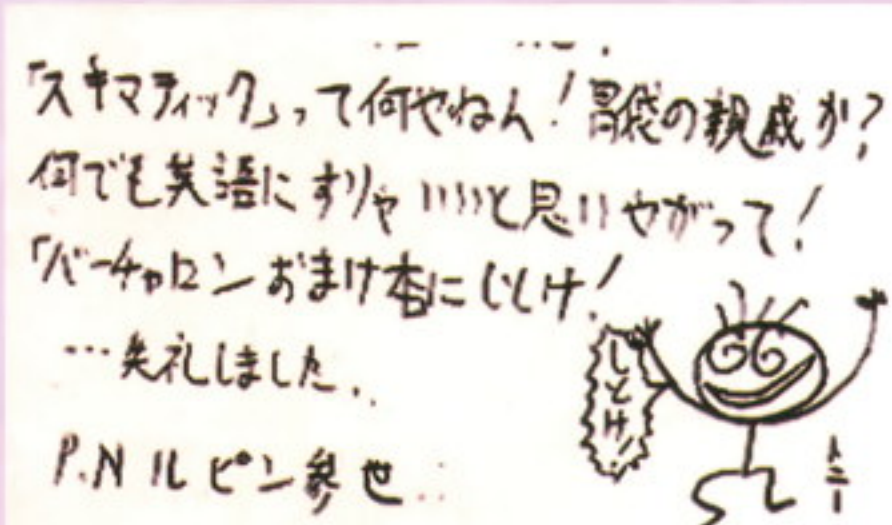 「スキマティック」って何やねん!胃袋の親戚か?
何でも英語にすりゃいいと思いやがって!
「バーチャロンおまけ本にしとけ!
…失礼しました。
P.N ルピン参世
しとけ!
トニー